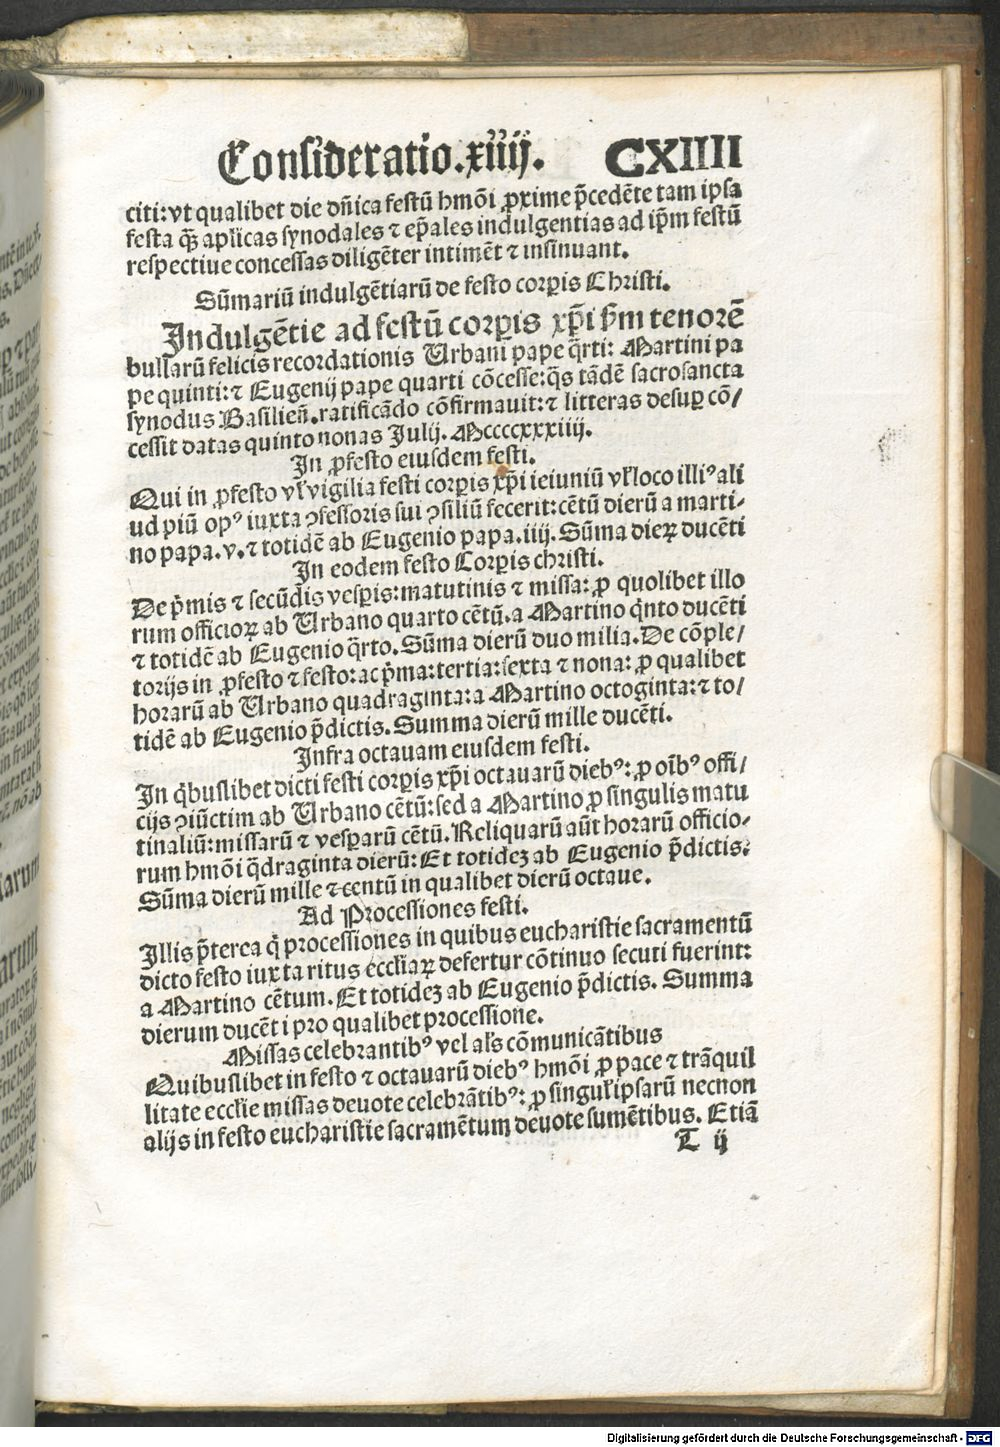 Consideratio.xiiij. CXIIII
citi:vt qualibet die dñica festũ hmõi ꝓxime p̃cedẽte tam ipsa
festa qꝫ aplicas synodales ⁊ ep̃ales indulgentias ad ip̃m festũ
respectiue concessas diligẽter intimẽt ⁊ insinuant.
Sũmariũ indulgẽtiarũ de festo corꝑis Christi.
Indulgẽtie ad festũ corꝑis xp̃i s̃m tenorẽ
bullarũ felicis recordationis Urbani pape q̃rti: Martini pa
pe quinti:⁊ Eugenij pape quarti cõcesse:q̃s tãdẽ sacrosancta
synodus Basilieñ.ratificãdo cõfirmauit:⁊ litteras desuꝑ cõ/
cessit datas quinto nonas Julij. Mccccxxxiiij.
In ꝓfesto eiusdem festi.
Qui in ꝓfesto vl̃ vigilia festi corꝑis xp̃i ieiuniũ vl̃ loco illiꝰ ali
ud piũ opꝰ iuxta ꝯfessoris sui ꝯsiliũ fecerit:cẽtũ dierũ a marti-
no papa.v.⁊ totidẽ ab Eugenio papa.iiij. Sũma dieꝝ ducẽti
In eodem festo Corꝑis christi.
De p̃mis ⁊ secũdis vesꝑis:matutinis ⁊ missa: ꝓ quolibet illo
rum officioꝝ ab Urbano quarto cẽtũ.a Martino q̃nto ducẽti
⁊ totidẽ ab Eugenio q̃rto. Sũma dierũ duo milia. De cõple/
torijs in ꝓfesto ⁊ festo: ac p̃ma:tertia:sexta ⁊ nona: ꝓ qualibet
horarũ ab Urbano quadraginta:a Martino octoginta:⁊ to/
tidẽ ab Eugenio p̃dictis. Summa dierũ mille ducẽti.
Infra octauam eiusdem festi.
In q̃buslibet dicti festi corꝑis xp̃i octauarũ diebꝰ: ꝓ oĩbꝰ offi/
cijs ꝯiũctim ab Urbano cẽtũ:sed a Martino ꝓ singulis matu
tinaliũ:missarũ ⁊ vesꝑarũ cẽtũ. Reliquarũ aũt horarũ officio-
rum hmõi q̃draginta dierũ: Et totideꝫ ab Eugenio p̃dictis:
Sũma dierũ mille ⁊ centũ in qualibet dierũ octaue.
Ad Processiones festi.
Illis p̃terea q̃ processiones in quibus eucharistie sacramentũ
dicto festo iuxta ritus eccl̃iaꝝ defertur cõtinuo secuti fuerint:
a Martino cẽtum. Et totideꝫ ab Eugenio p̃dictis. Summa
dierum ducẽti pro qualibet processione.
Missas celebrantibꝰ vel al̃s cõmunicãtibus
Quibuslibet in festo ⁊ octauarũ diebꝰ hmõi ꝓ pace ⁊ trãquil
litate eccl̃ie missas deuote celebrãtibꝰ: ꝓ singul̃ ipsarũ necnon
alijs in festo eucharistie sacramẽtum deuote sumẽtibus. Etiã
T ij
Digitalisierung gefördert durch die Deutsche Forschungsgemeinschaft - DFG